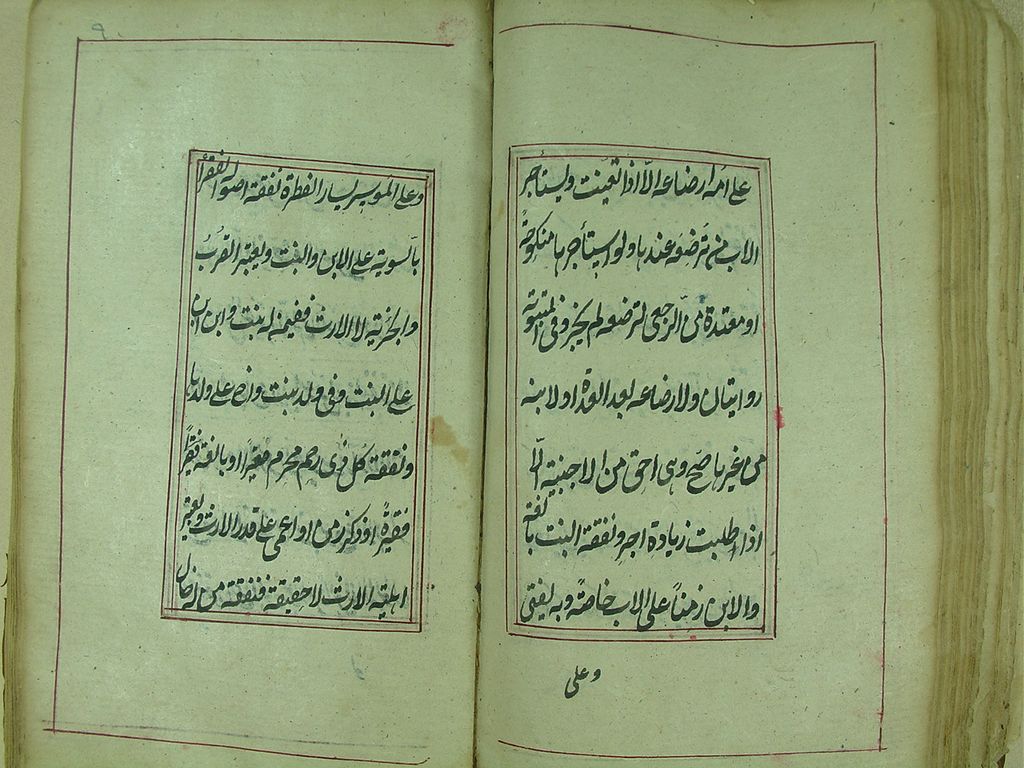 على امه ارضاعه الّا اذا تعينت ويستأجر
الاب من ترضعه عندها ولو استأجرها منكوحةً
او معتدة من الرجعى لترضعه لم يجز وفى المبتوتة
روايتان ولارضاعه بعد العدة او لابنه
من غيرها صح وهى احق من الاجنبية الّا
اذا طلبت زيادة اجر ونفقة البنت بالغة
والابن زمناً على الاب خاصة وبه يفتى
وعلى
٩
وعلى الموسر يسار الفطرة نفقة اصوله الفقرأ
بالسوية على الابن والبنت ويعتبر القربُ
والجزئية لا الارث ففيمن له بنت وابن ابن
على البنت وفى ولد بنت واخ على ولدها
ونفقة كل ذى رحم محرم صغيراً او بالغة فقيراً
فقيرةً او ذكر زمن او اعمى على قدر الارث ويعتبر
اهلية الارث لا حقيقة فنفقة من له خال